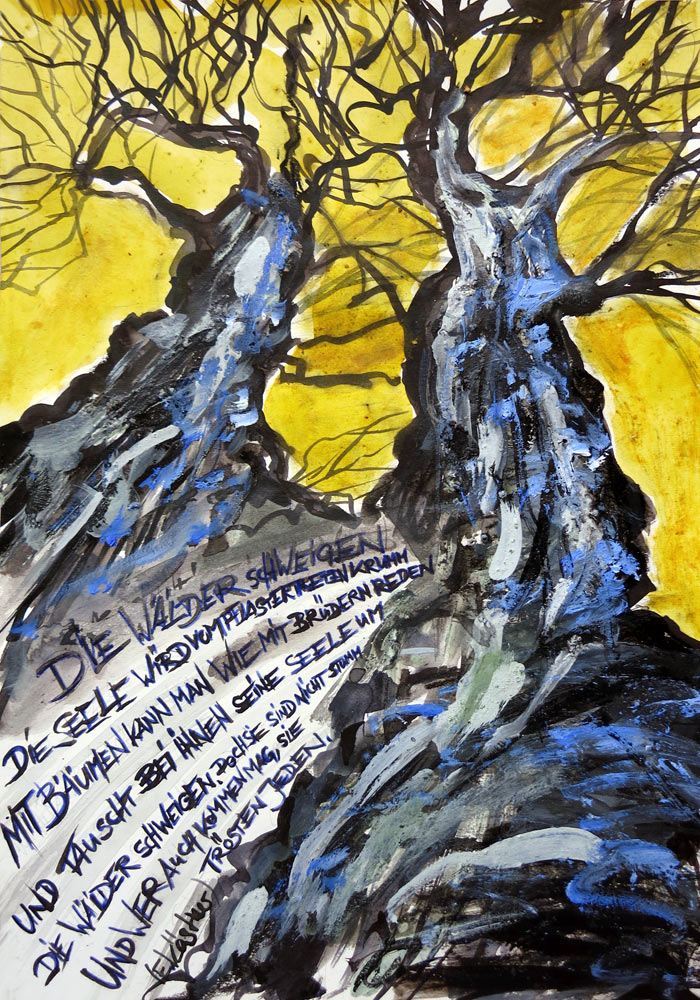 DIE WÄLDER SCHWEIGEN
DIE SEELE WIRD VOM PFLASTERTRETEN KRUMM
MIT BÄUMEN KANN MAN WIE MIT BRÜDERN REDEN
UND TAUSCHT BEI IHNEN SEINE SEELE UM
DIE WÄLDER SCHWEIGEN. DOCH SIE SIND NICHT STUMM
UND WER AUCH KOMMEN MAG, SIE
TRÖSTEN JEDEN.